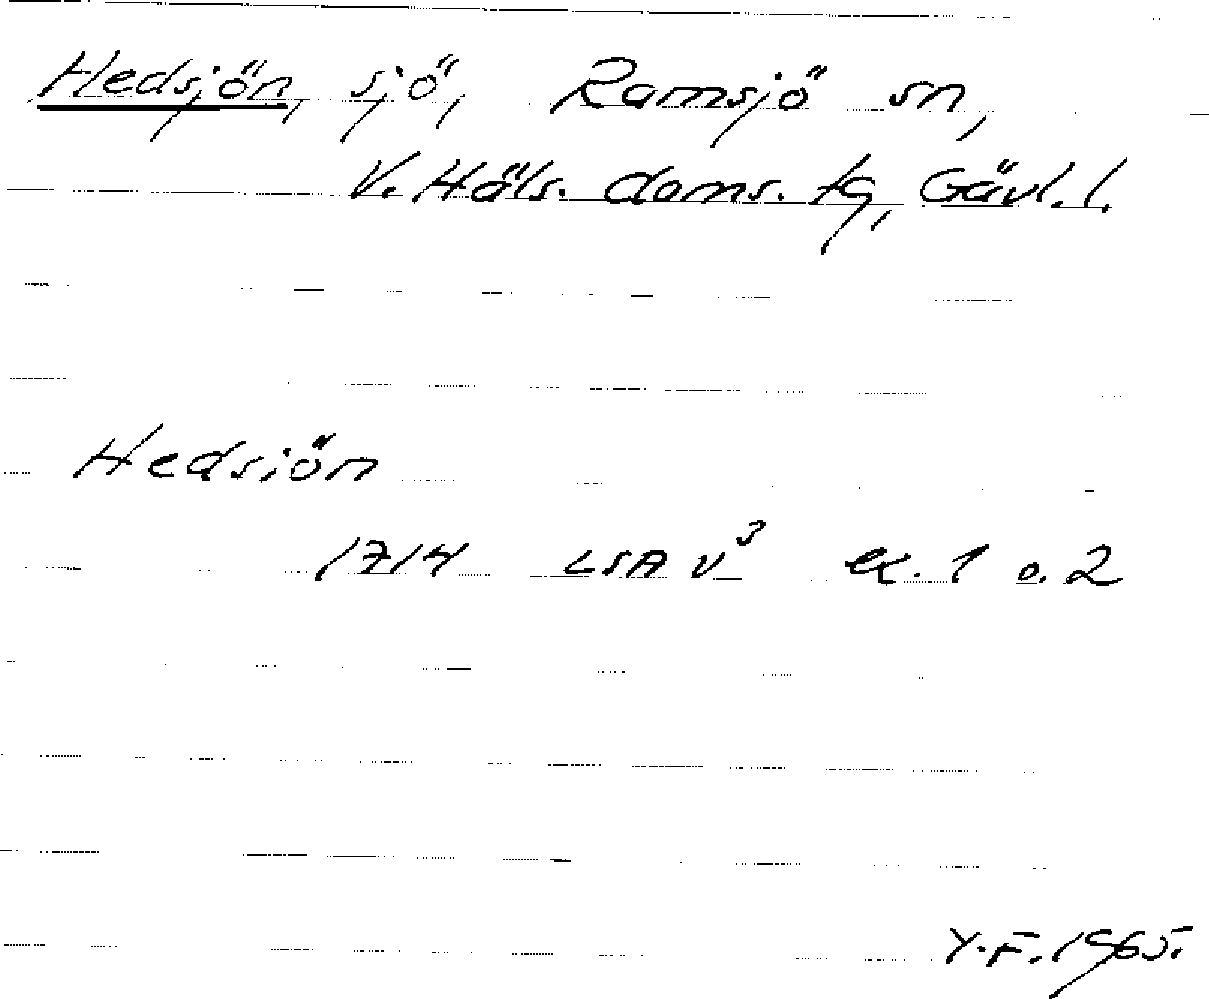 Hedsjön, sjö, Ramsjö sn,
V. Häls. doms. tg, Gävl. l.
Hedsiön
1714 LSA v³ ex. 1 o. 2
Y.F. 1965.